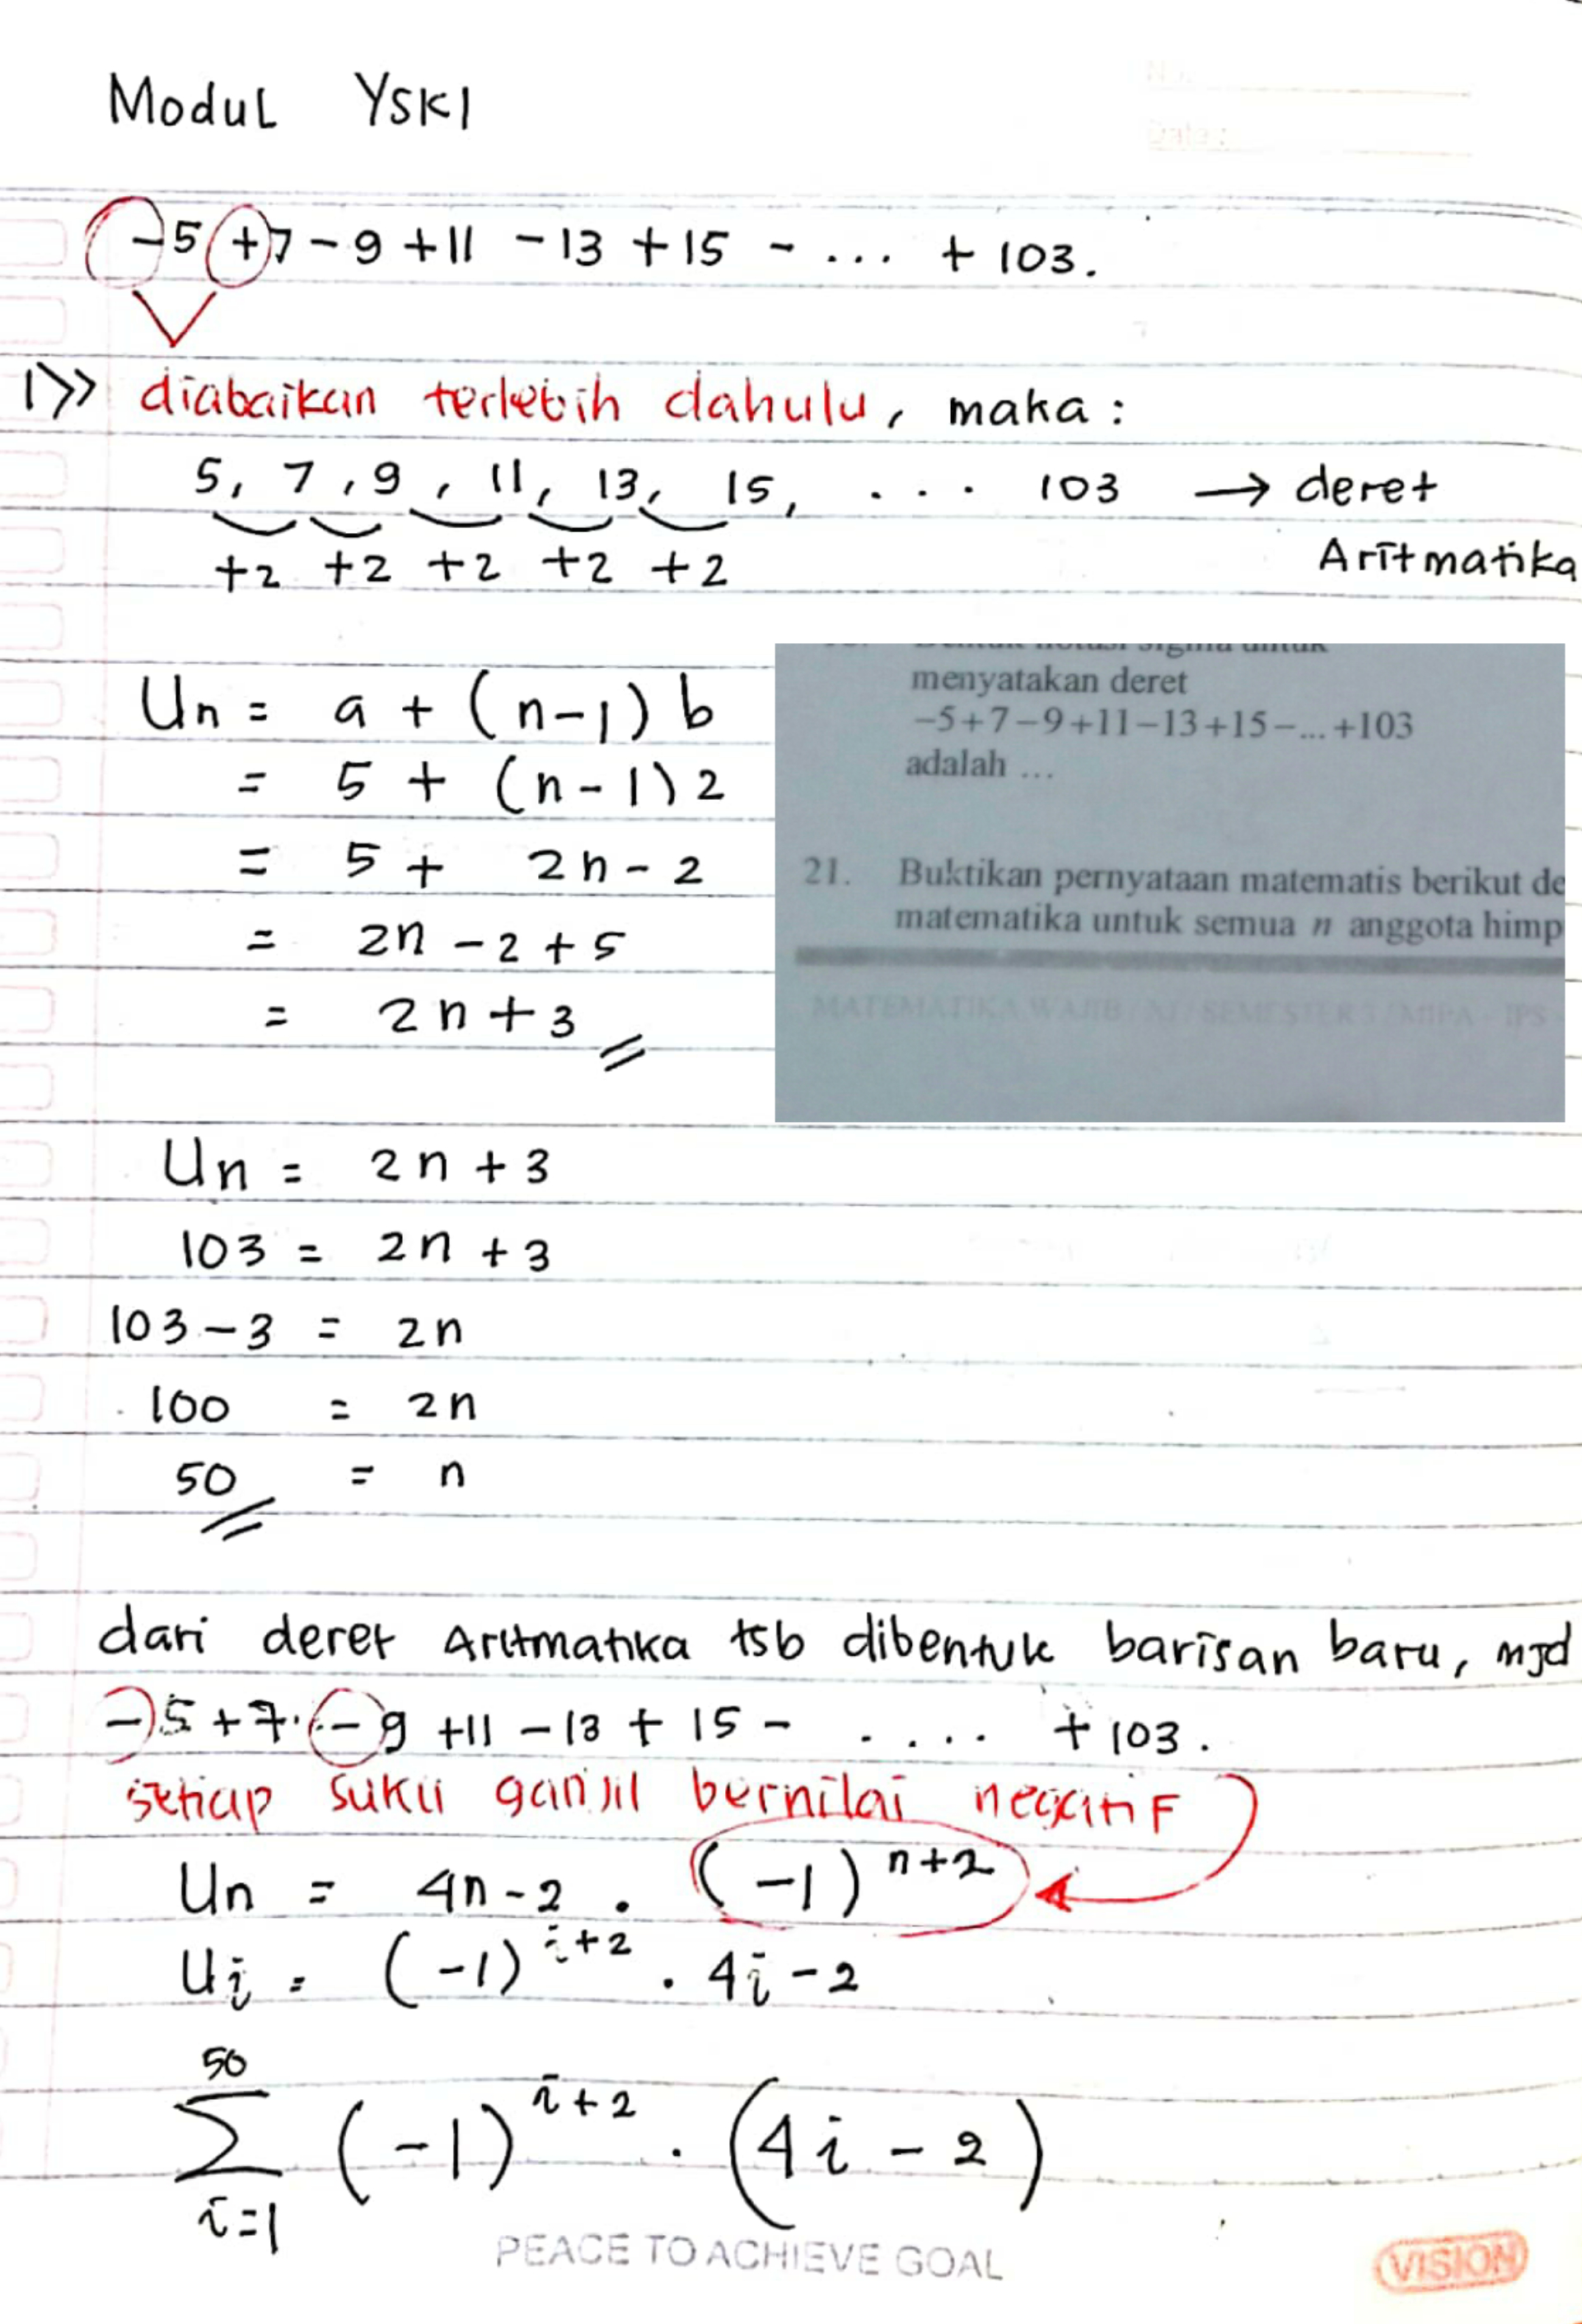 Modul YSKI
-5 +7 - 9 +11 - 13 + 15 - ... + 103.
1>> diabaikan terlebih dahulu, maka :
5, 7, 9, 11, 13, 15, ... 103 → deret
Aritmatika
+2 +2 +2 +2 +2
Un = a + (n-1) b
= 5 + (n-1) 2
= 5 + 2n - 2
= 2n - 2 + 5
= 2n + 3
Bentuk notasi sigma untuk
menyatakan deret
-5+7-9+11-13+15-...+103
adalah ...
21. Buktikan pernyataan matematis berikut de
matematika untuk semua n anggota himp
MATEMATIKA WAJIB / XI / SEMESTER 3 / MIPA - IPS
Un = 2n + 3
103 = 2n + 3
103 - 3 = 2n
100 = 2n
50 = n
dari deret Aritmatika tsb dibentuk barisan baru, mjd
-5 + 7 - 9 +11 - 13 + 15 - .... + 103.
setiap suku ganjil bernilai negatif
Un = 4n - 2 . (-1)^n+2
Ui = (-1)^i+2 . 4i - 2
50
∑ (-1)^i+2 . (4i - 2)
i=1
PEACE TO ACHIEVE GOAL
VISION